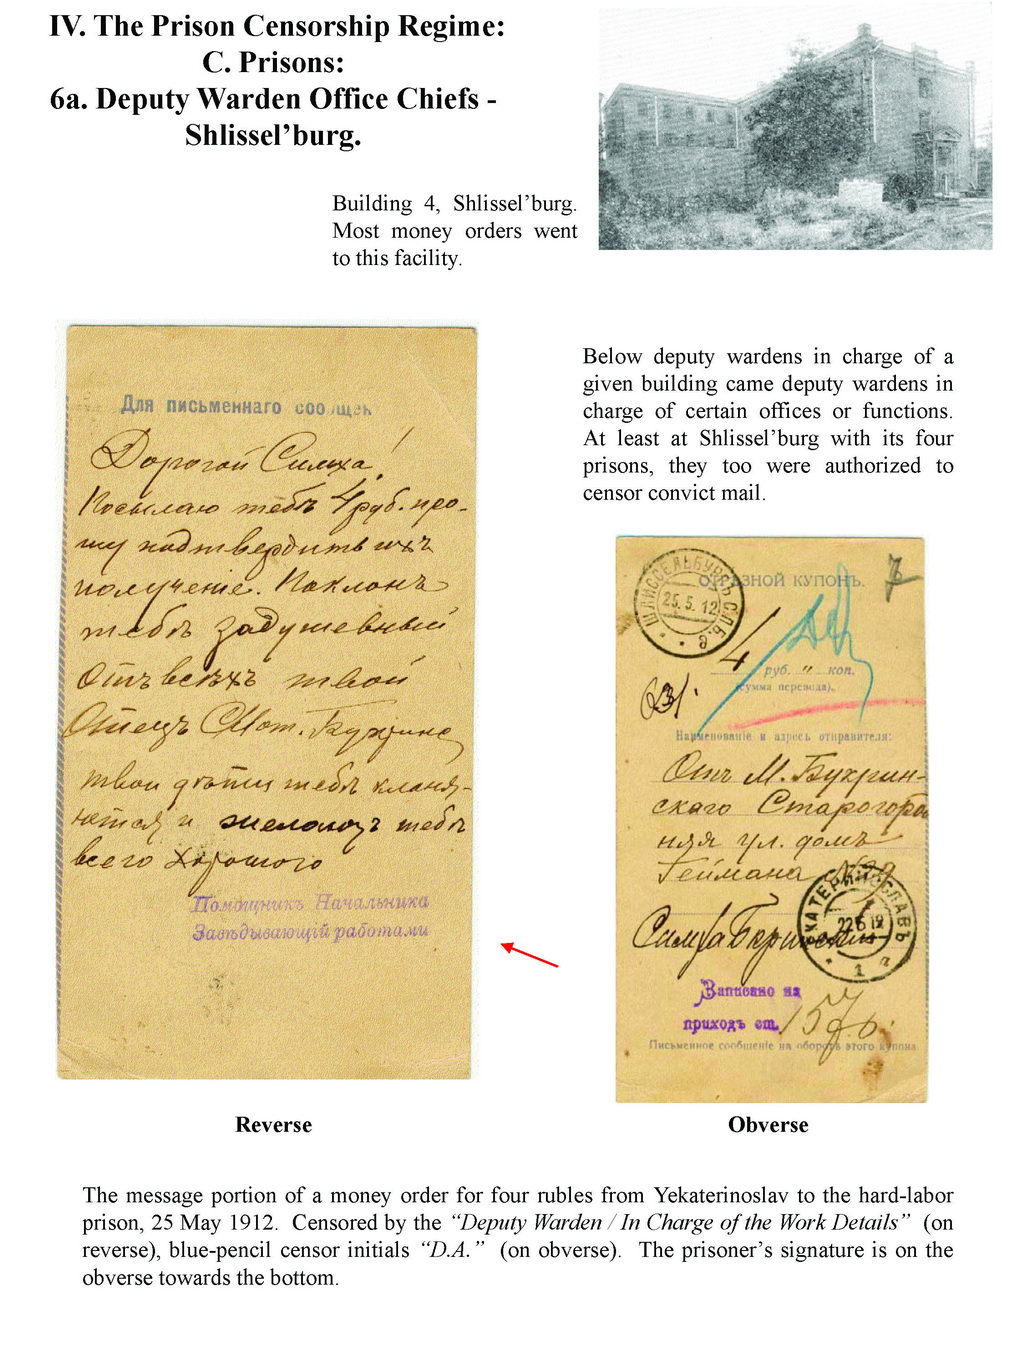 IV. The Prison Censorship Regime:
C. Prisons:
6a. Deputy Warden Office Chiefs -
Shlissel’burg.
Building 4, Shlissel’burg.
Most money orders went
to this facility.
Below deputy wardens in charge of a
given building came deputy wardens in
charge of certain offices or functions.
At least at Shlissel’burg with its four
prisons, they too were authorized to
censor convict mail.
Для письменнаго сообщен
Дорогой Симха!
Посылаю тебѣ 4 руб. про-
шу подтвердить ихъ
получение. Поклонъ
тебѣ задушевный
Отъ всѣхъ твой
Отецъ
твои дѣти тебѣ кланя-
ются и желаютъ тебѣ
всего хорошого
Помощникъ Начальника
Завѣдывающій работами
ОТРѢЗНОЙ КУПОНЪ.
7
ШЛИССЕЛЬБУРГЪ СПБ.
25.5.12
4 руб. " коп.
(сумма перевода).
631.
Наименованіе и адресъ отправителя:
Отъ М. Букрин-
скаго Старогород
няя ул. домъ
Геймана №
ЕКАТЕРИНОСЛАВЪ
22 5 12
1 а
Симха
Записано на
приходъ ст. 157
Письменное сообщеніе на оборотѣ этого купона
Reverse
Obverse
The message portion of a money order for four rubles from Yekaterinoslav to the hard-labor
prison, 25 May 1912. Censored by the “Deputy Warden / In Charge of the Work Details” (on
reverse), blue-pencil censor initials “D.A.” (on obverse). The prisoner’s signature is on the
obverse towards the bottom.